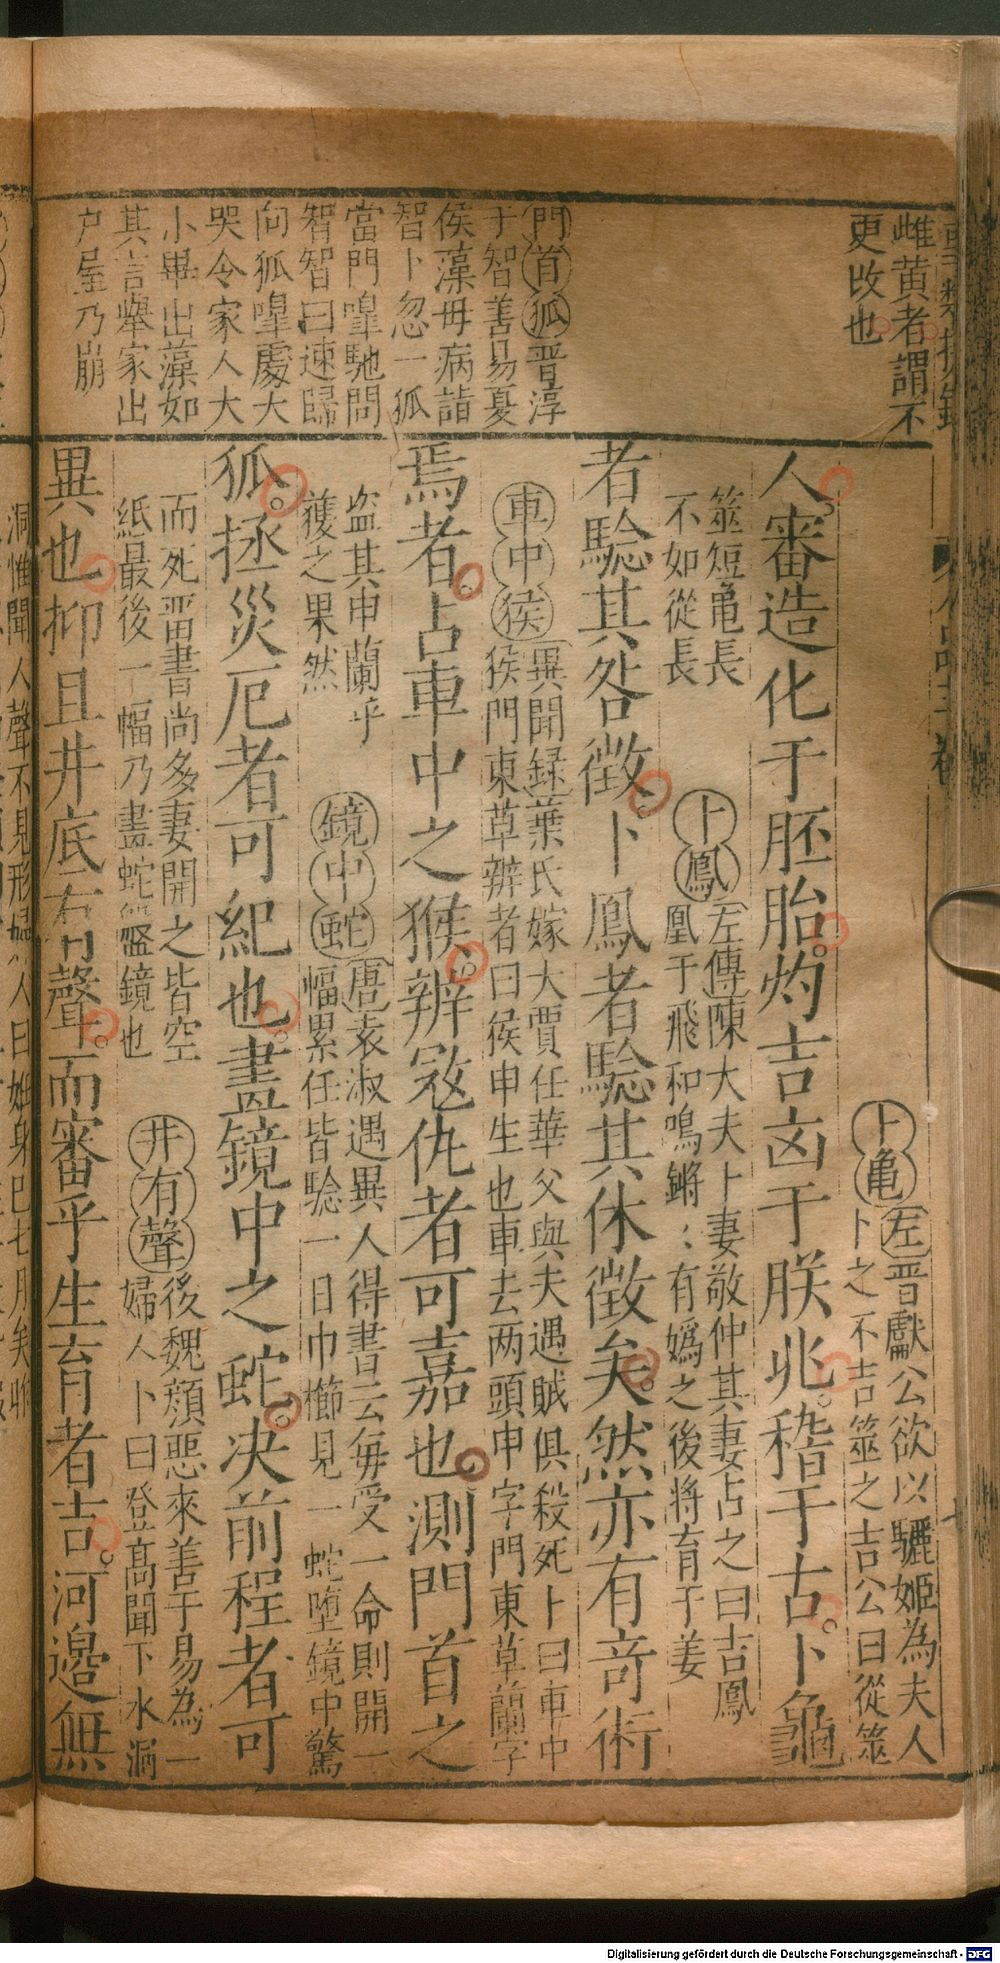 雌黄者謂不
更改也
門首狐晋淳
于智善易夏
侯藻母病詣
智卜忽一狐
當門嘷馳問
智智曰速歸
向狐嘷處大
哭令家人大
小畢出藻如
其言舉家出
户屋乃崩
卜龜左晋獻公欲以驪姬為夫人
卜之不吉筮之吉公曰從筮
人審造化于胚胎灼吉凶于朕兆稽于古卜龜
筮短龜長
不如從長
卜鳳左傳陳大夫卜妻敬仲其妻占之曰吉鳳
凰于飛和鳴鏘〻有嬀之後將育于姜
者驗其咎徵卜鳳者驗其休徵矣然亦有竒術
車中猴異聞録葉氏嫁大賈任華父與夫遇賊俱殺死卜曰車中
猴門東草辨者曰侯申生也車去两頭申字門東草蘭字
焉者占車中之猴辨寇仇者可嘉也測門首之
盗其申蘭乎
獲之果然
鏡中蛇唐袁淑遇異人得書云毎受一命則開一
幅累任皆驗一日巾櫛見一蛇墮鏡中驚
狐拯災厄者可紀也畫鏡中之蛇决前程者可
而死畱書尚多妻開之皆空
紙最後一幅乃畫蛇盤鏡也
井有聲後魏顔惡來善于易為一
婦人卜曰登髙聞下水洞
異也抑且井底有聲而審乎生育者吉河邉無
洞惟聞人聲不見形婦人曰姙身已七月矣
Digitalisierung gefördert durch die Deutsche Forschungsgemeinschaft - DFG